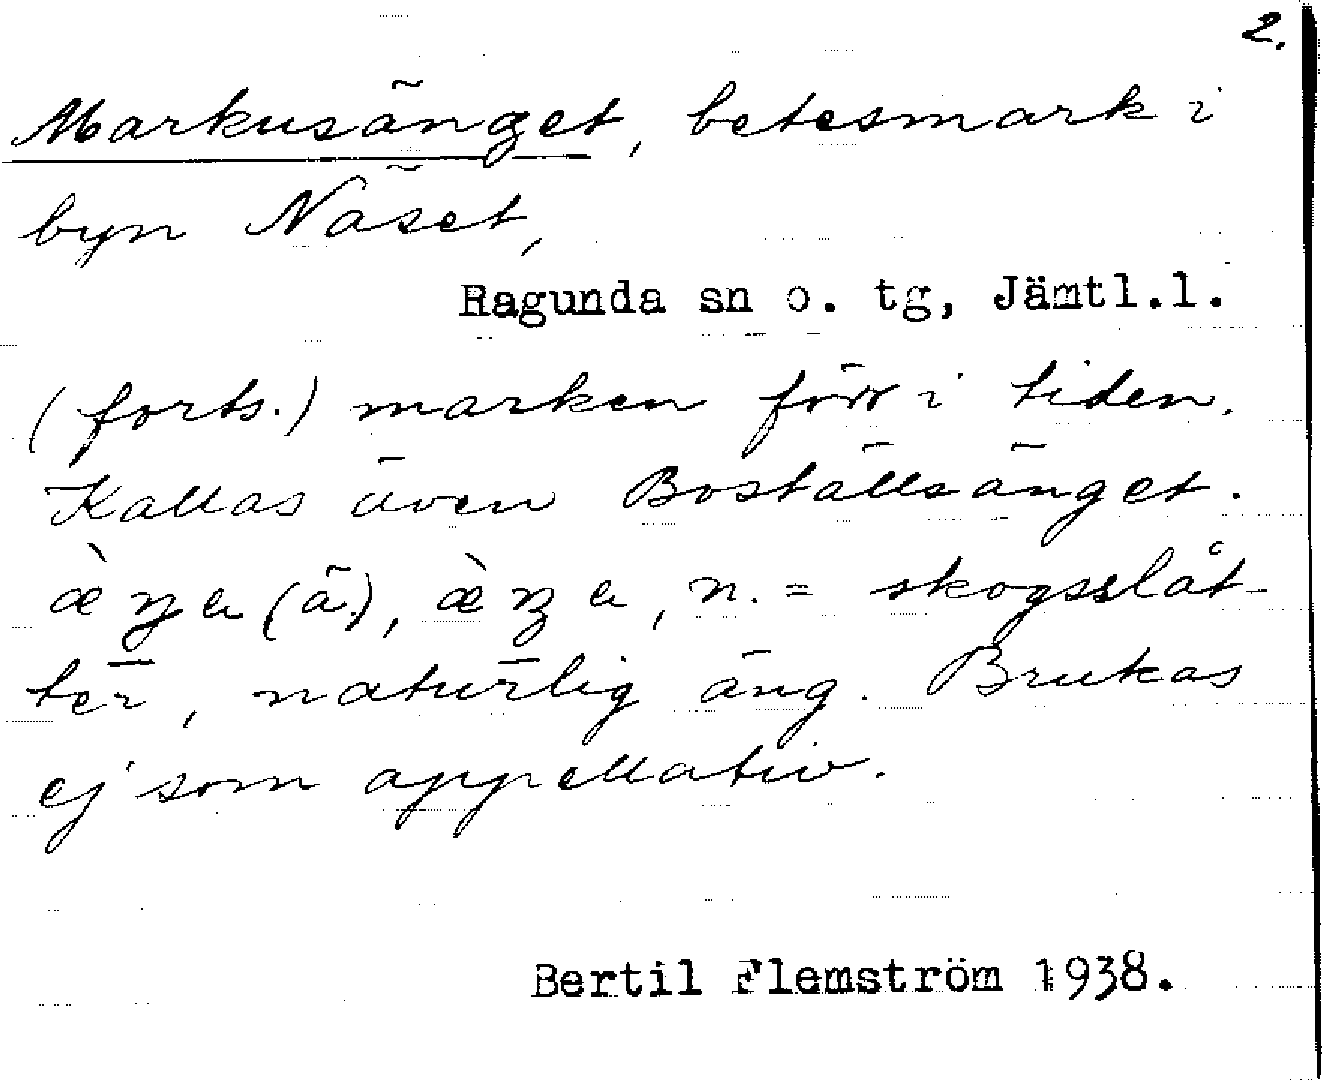 2.
Markusänget, betesmark i
byn Näset,
Ragunda sn o. tg, Jämtl.l.
(forts.) marken förr i tiden.
Kallas även Boställsänget.
(ä.), n. = skogsslåt-
ter, naturlig äng. Brukas
ej som appellativ.
Bertil Flemström 1938.